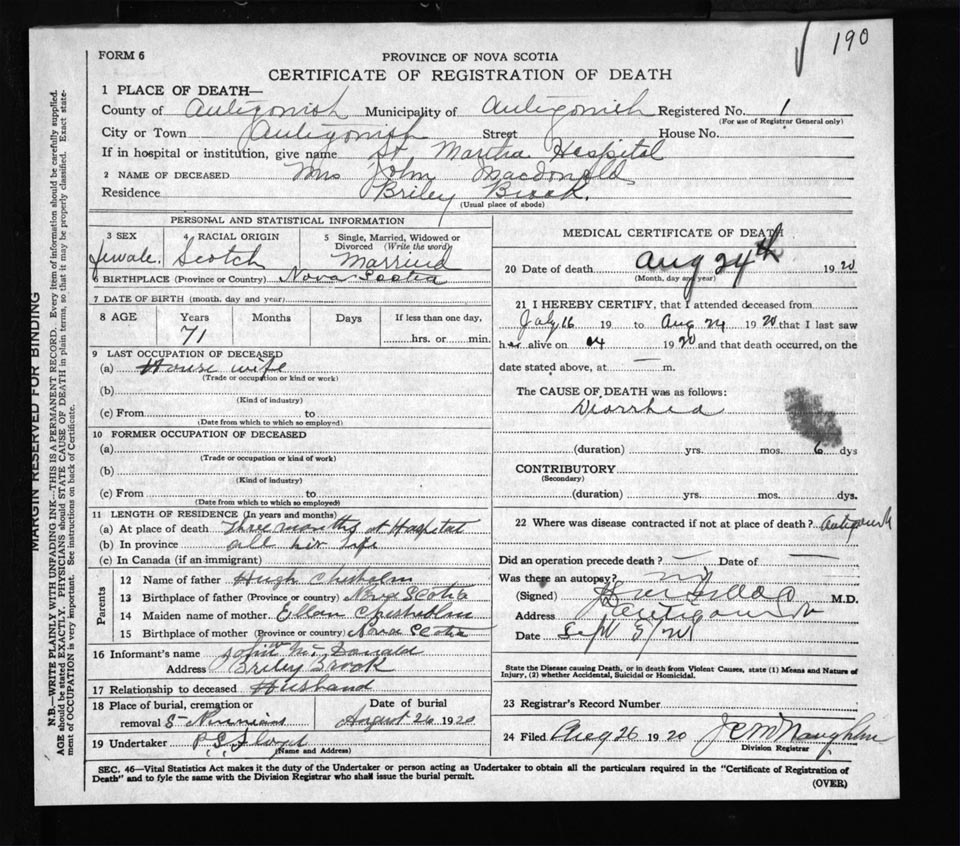 190
FORM 6
PROVINCE OF NOVA SCOTIA
CERTIFICATE OF REGISTRATION OF DEATH
1 PLACE OF DEATH—
County of Antigonish Municipality of Antigonish Registered No. 1
(For use of Registrar General only)
City or Town Antigonish Street House No.
If in hospital or institution, give name St Martha Hospital
2 NAME OF DECEASED Mrs John Macdonald
Residence Briley Brook.
(Usual place of abode)
PERSONAL AND STATISTICAL INFORMATION
3 SEX 4 RACIAL ORIGIN 5 Single, Married, Widowed or Divorced (Write the word)
female. Scotch Married
6 BIRTHPLACE (Province or Country) Nova Scotia
7 DATE OF BIRTH (month, day and year)
8 AGE Years Months Days If less than one day,
71 hrs. or min.
9 LAST OCCUPATION OF DECEASED
(a) House wife
(Trade or occupation or kind or work)
(b)
(Kind of industry)
(c) From to
(Date from which to which so employed)
10 FORMER OCCUPATION OF DECEASED
(a)
(Trade or occupation or kind of work)
(b)
(Kind of industry)
(c) From to
(Date from which to which so employed)
11 LENGTH OF RESIDENCE (In years and months)
(a) At place of death three months at Hospital
(b) In province all her life
(c) In Canada (if an immigrant)
Parents
12 Name of father Hugh Chisholm
13 Birthplace of father (Province or country) Nova Scotia
14 Maiden name of mother Ellen Chisholm
15 Birthplace of mother (Province or country) Nova Scotia
16 Informant's name John McDonald
Address Briley Brook
17 Relationship to deceased Husband
18 Place of burial, cremation or Date of burial
removal St Ninnians August 26 1920
19 Undertaker
(Name and Address)
MEDICAL CERTIFICATE OF DEATH
20 Date of death Aug 24th 1920
(Month, day and year)
21 I HEREBY CERTIFY, that I attended deceased from
July 16 19 to Aug 24 1920 that I last saw
her alive on 24 1920 and that death occurred, on the
date stated above, at — m.
The CAUSE OF DEATH was as follows:
Diorrhea
(duration) yrs. mos. 6 dys
CONTRIBUTORY
(Secondary)
(duration) yrs. mos. dys.
22 Where was disease contracted if not at place of death? Antigonish
Did an operation precede death? — Date of —
Was there an autopsy? no
(Signed) M.D.
Address Antigonish
Date Sept 3/20
State the Disease causing Death, or in death from Violent Causes, state (1) Means and Nature of
Injury, (2) whether Accidental, Suicidal or Homicidal.
23 Registrar's Record Number
24 Filed Aug 26 1920
Division Registrar
SEC. 46—Vital Statistics Act makes it the duty of the Undertaker or person acting as Undertaker to obtain all the particulars required in the "Certificate of Registration of
Death" and to fyle the same with the Division Registrar who shall issue the burial permit.
(OVER)
MARGIN RESERVED FOR BINDING
N.B.—WRITE PLAINLY WITH UNFADING INK—THIS IS A PERMANENT RECORD. Every item of information should be carefully supplied.
AGE should be stated EXACTLY. PHYSICIANS should STATE CAUSE OF DEATH in plain terms, so that it may be properly classified. Exact state-
ment of OCCUPATION is very important. See instructions on back of Certificate.